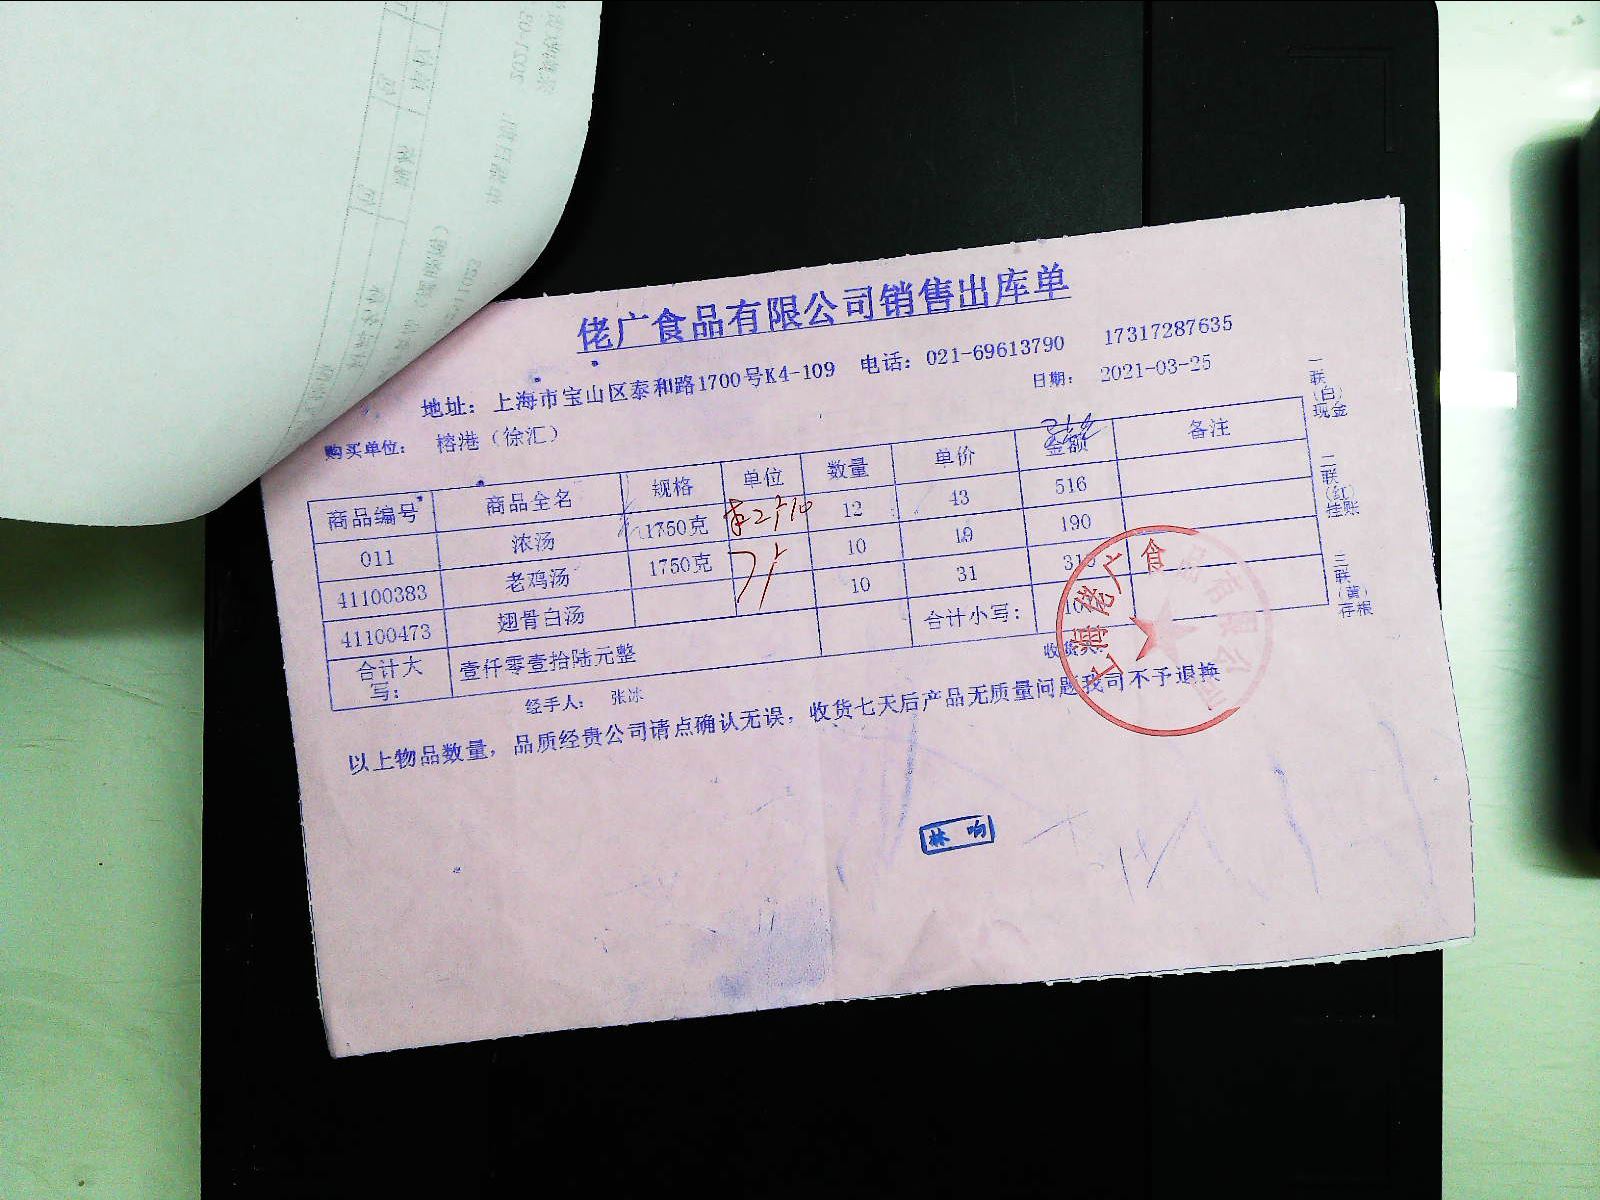 佬广食品有限公司销售出库单
地址：上海市宝山区泰和路1700号K4-109 电话：021-69613790 17317287635
购买单位：榕港（徐汇） 日期：2021-03-25
商品编号 商品全名 规格 单位 数量 单价 金额 备注
011 浓汤 1750克 12 43 516
41100383 老鸡汤 1750克 10 19 190
41100473 翅骨白汤 10 31
合计大写： 壹仟零壹拾陆元整 合计小写：
经手人： 张冰 收货人：
以上物品数量，品质经贵公司请点确认无误，收货七天后产品无质量问题我司不予退换
一联（白）现金
二联（红）挂账
三联（黄）存根
上海佬广食品有限公司
林响